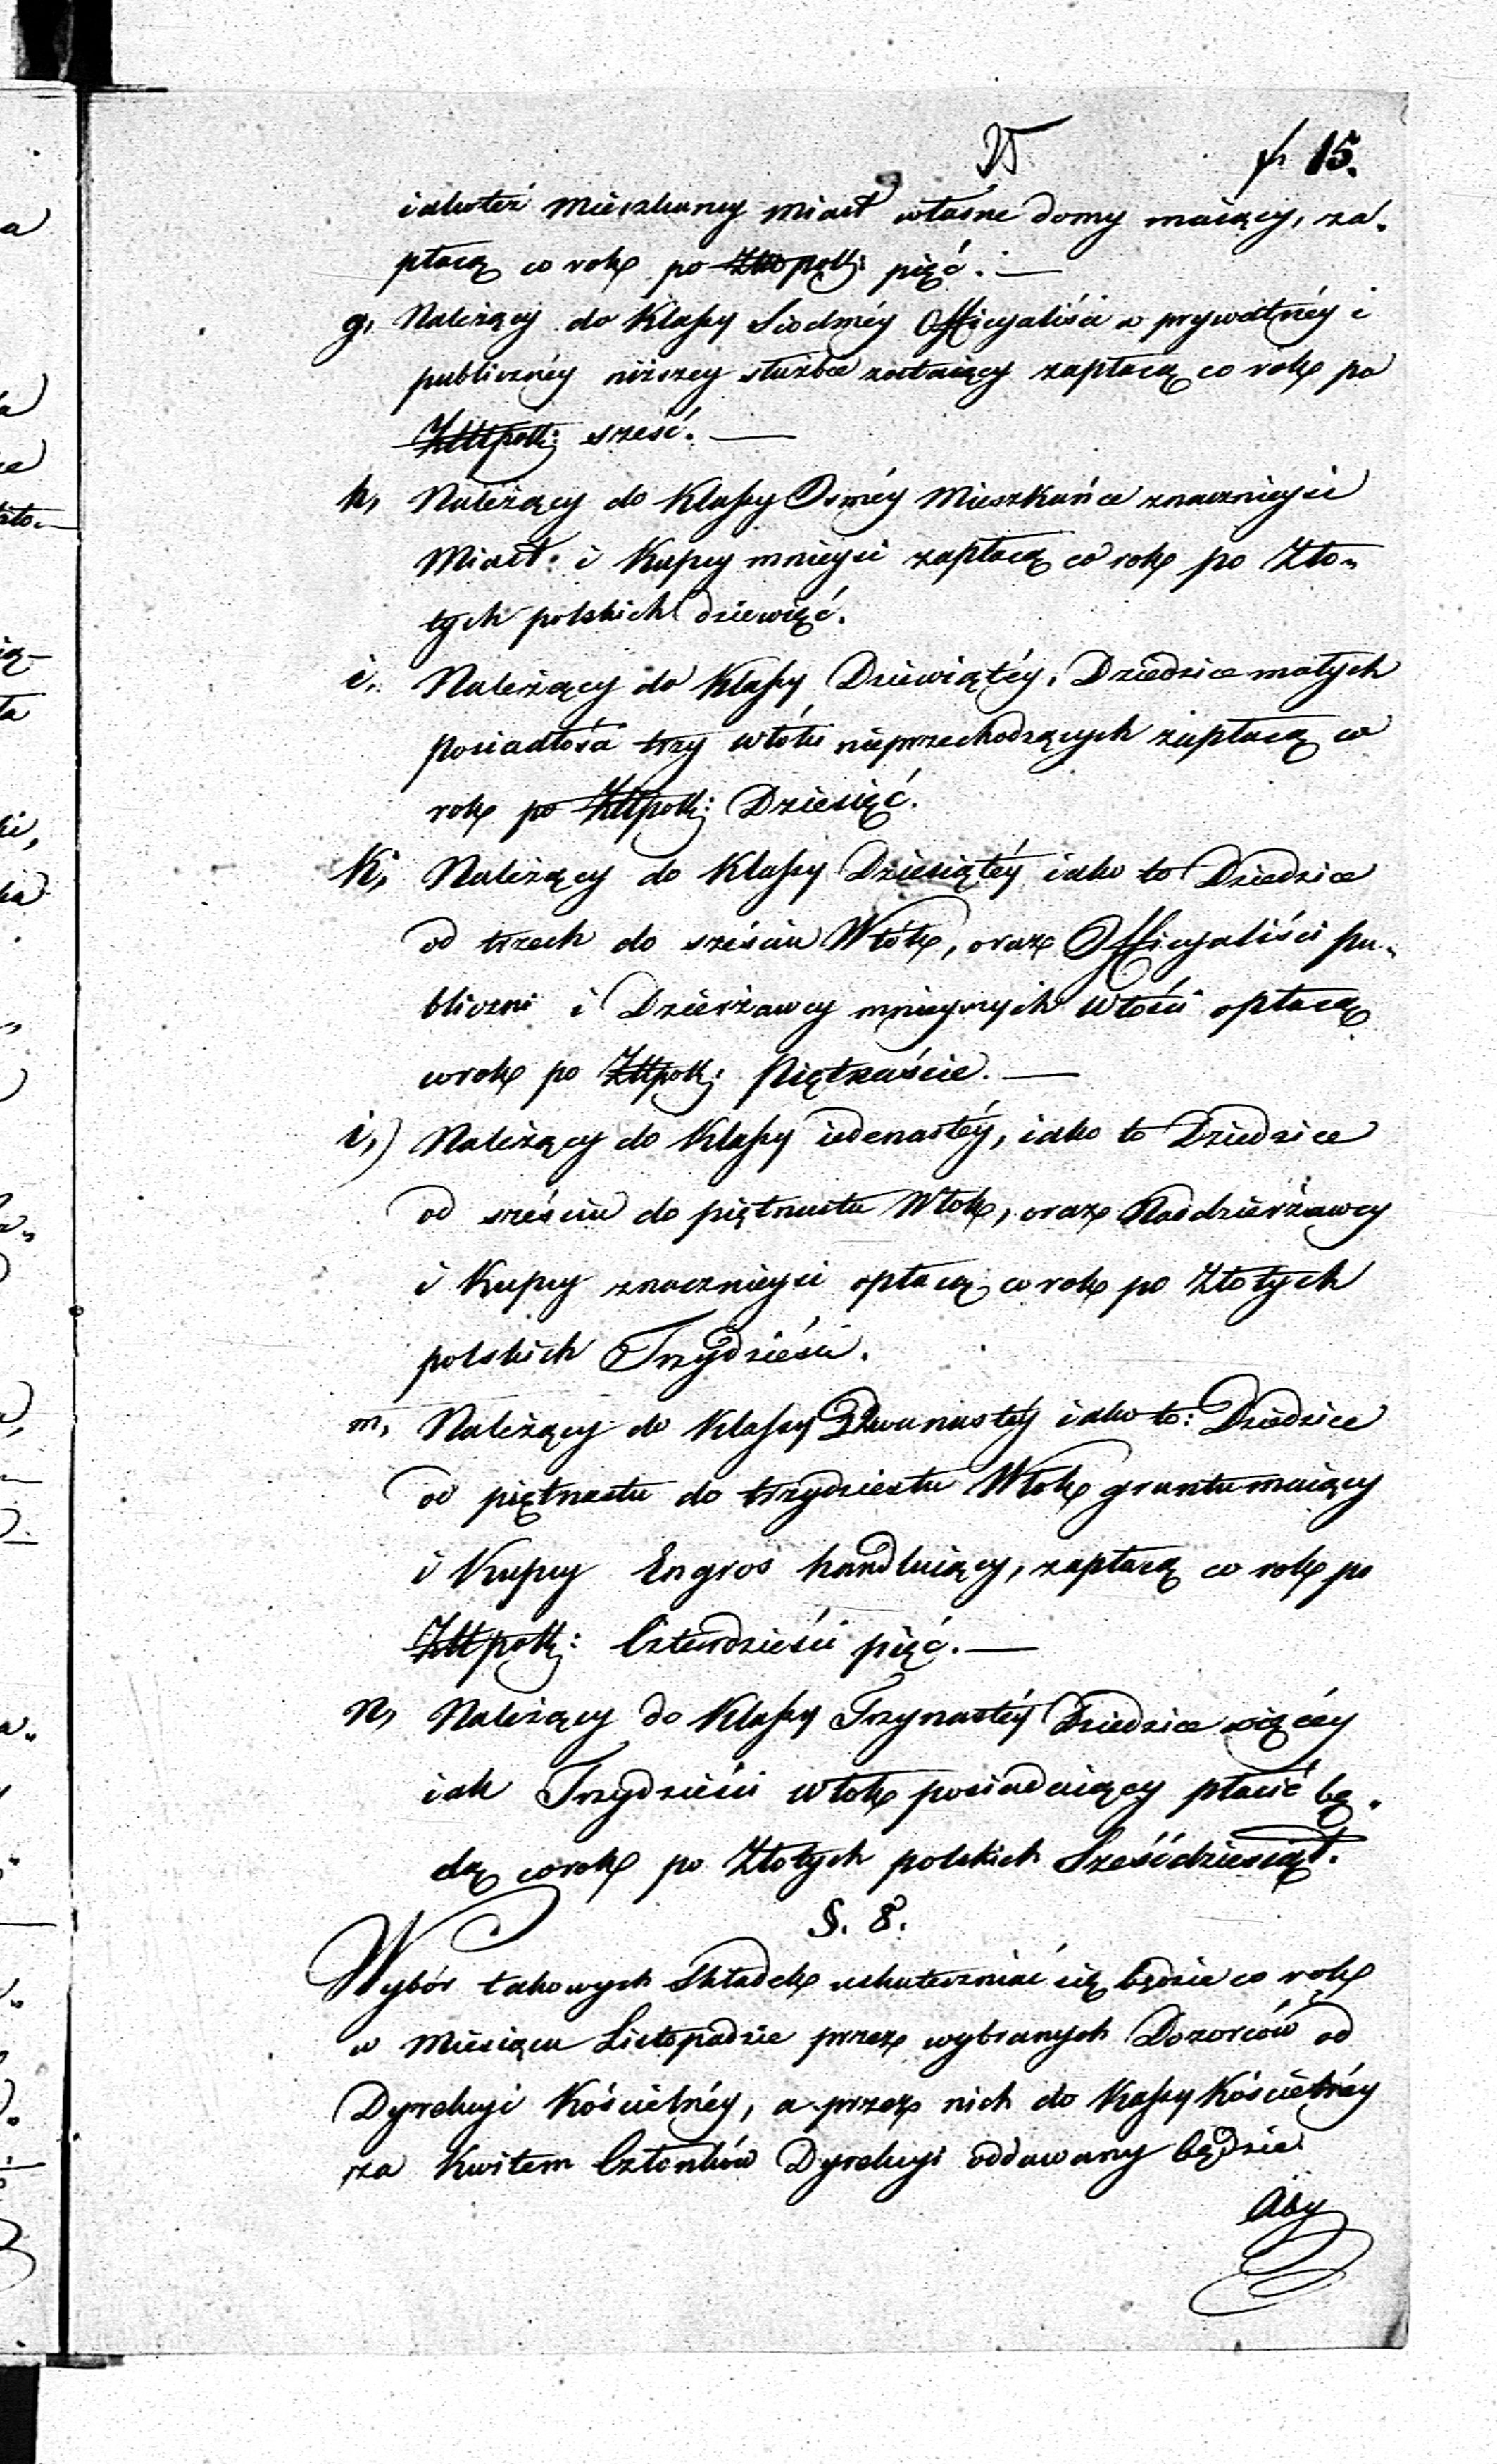 25 f. 15.
iakoteż Mieszkancy Miast własne domy maiący, za„
płacą co rok po Złlpolk: pięć. —
g, Należący do Klassy Siodméy Officyaliści w prywatnéy i
publicznéy niższey służbie zostaiący zapłacą co rok po
Złlpolk: sześć. —
h, Należący do Klassy Osméy Mieszkańce znacznieysi
Miast: i Kupcy mnieysi zapłacą co rok po Zło„
tych polskich dziewięć.
i, Należący do Klassy Dziewiątéy, Dziedzice małych
posiadłości trzy włóki nieprzechodzących zapłacą co
rok po Złlpolk: Dziesięć.
k, Należący do Klassy Dziesiątéy iako to Dziedzice
od trzech do sześciu Włók, oraz Officyaliści pu„
bliczni i Dzierżawcy mnieyszych Włości opłacą
corok po Złlpolk: Piętnaście. —
i,) Należący do Klassy iedenastéy, iako to Dziedzice
od sześciu do piętnastu Włok, oraz Naddzierżawcy
i Kupcy znacznieysi opłacą co rok po Złotych
polskich Trzydzieści.
m, Należący do Klassy Dwunastéy iako to: Dziedzice
od piętnastu do trzydziestu Włok gruntu maiący
i Kupcy Engros handluiący, zapłacą co rok po
Złlpolk: Czterdzieści pięć. —
n, Należący do Klassy Trzynastéy Dziedzice więcéy
iak Trzydzieści włok posiadaiący płacić bę„
dą corok po Złotych polskich Sześćdziesiąt.
§. 8.
Wybór takowych Składek uskuteczniać się będzie co rok
w Miesiącu Listopadzie przez wybranych Dozorców od
Dyrekcyi Kościelnéy, a przez nich do Kassy Kościelnéy
za Kwitem Członków Dyrekcyi oddawany będzie
Aby